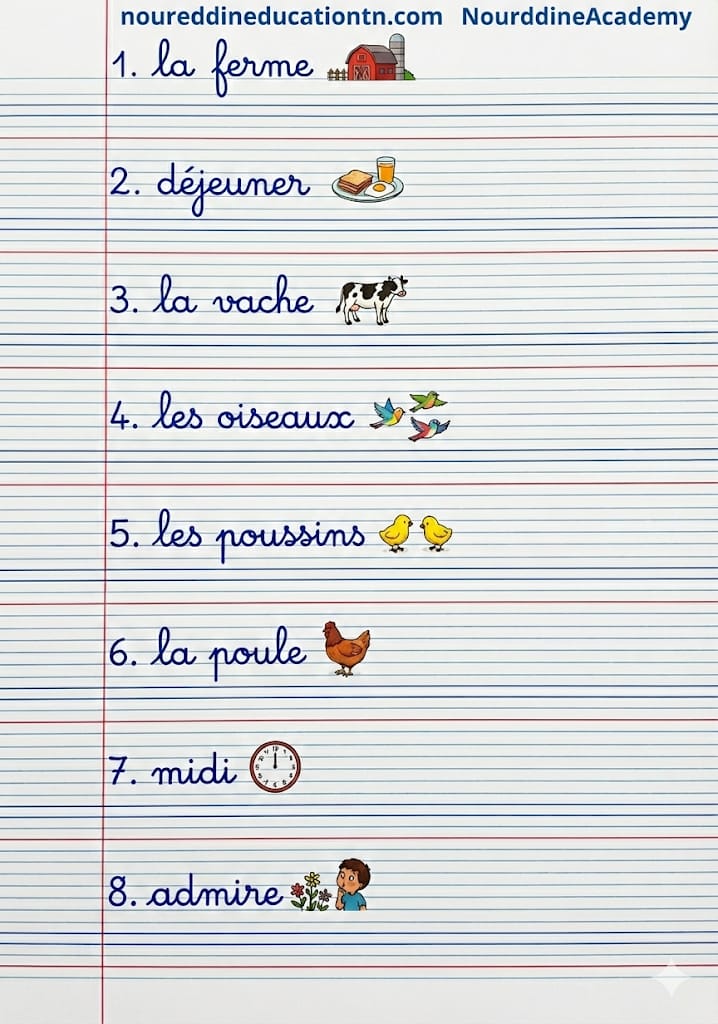 noureddineducationtn.com NourddineAcademy
1. la ferme
2. déjeuner
3. la vache
4. les oiseaux
5. les poussins
6. la poule
7. midi
8. admire